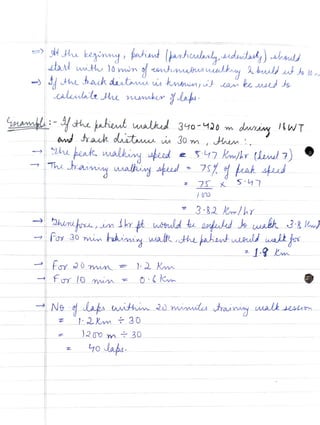 ⇒ At the beginning, patient (particularly, sedentary) should
start with 10 min of continuous walking & build it to
→ If the track distance is known, it can be used to
calculate the number of laps.
Example :- If the patient walked 340-420 m during ISWT
and track distance is 30 m, then :,
→ The peak walking speed = 5.47 Km/hr (level 7)
→ The training walking speed = 75% of peak speed
= 75/100 × 5.47
= 3.82 Km/hr
→ Therefore, in 1hr pt would be expected to walk 3.8 Km
→ For 30 min training walk, the patient would walk for
= 1.9 Km
→ For 20 min = 1.2 Km
→ For 10 min = 0.6 Km
→ No of laps within 20 minutes training walk session
= 1.2 Km ÷ 30
= 1200 m ÷ 30
= 40 laps.